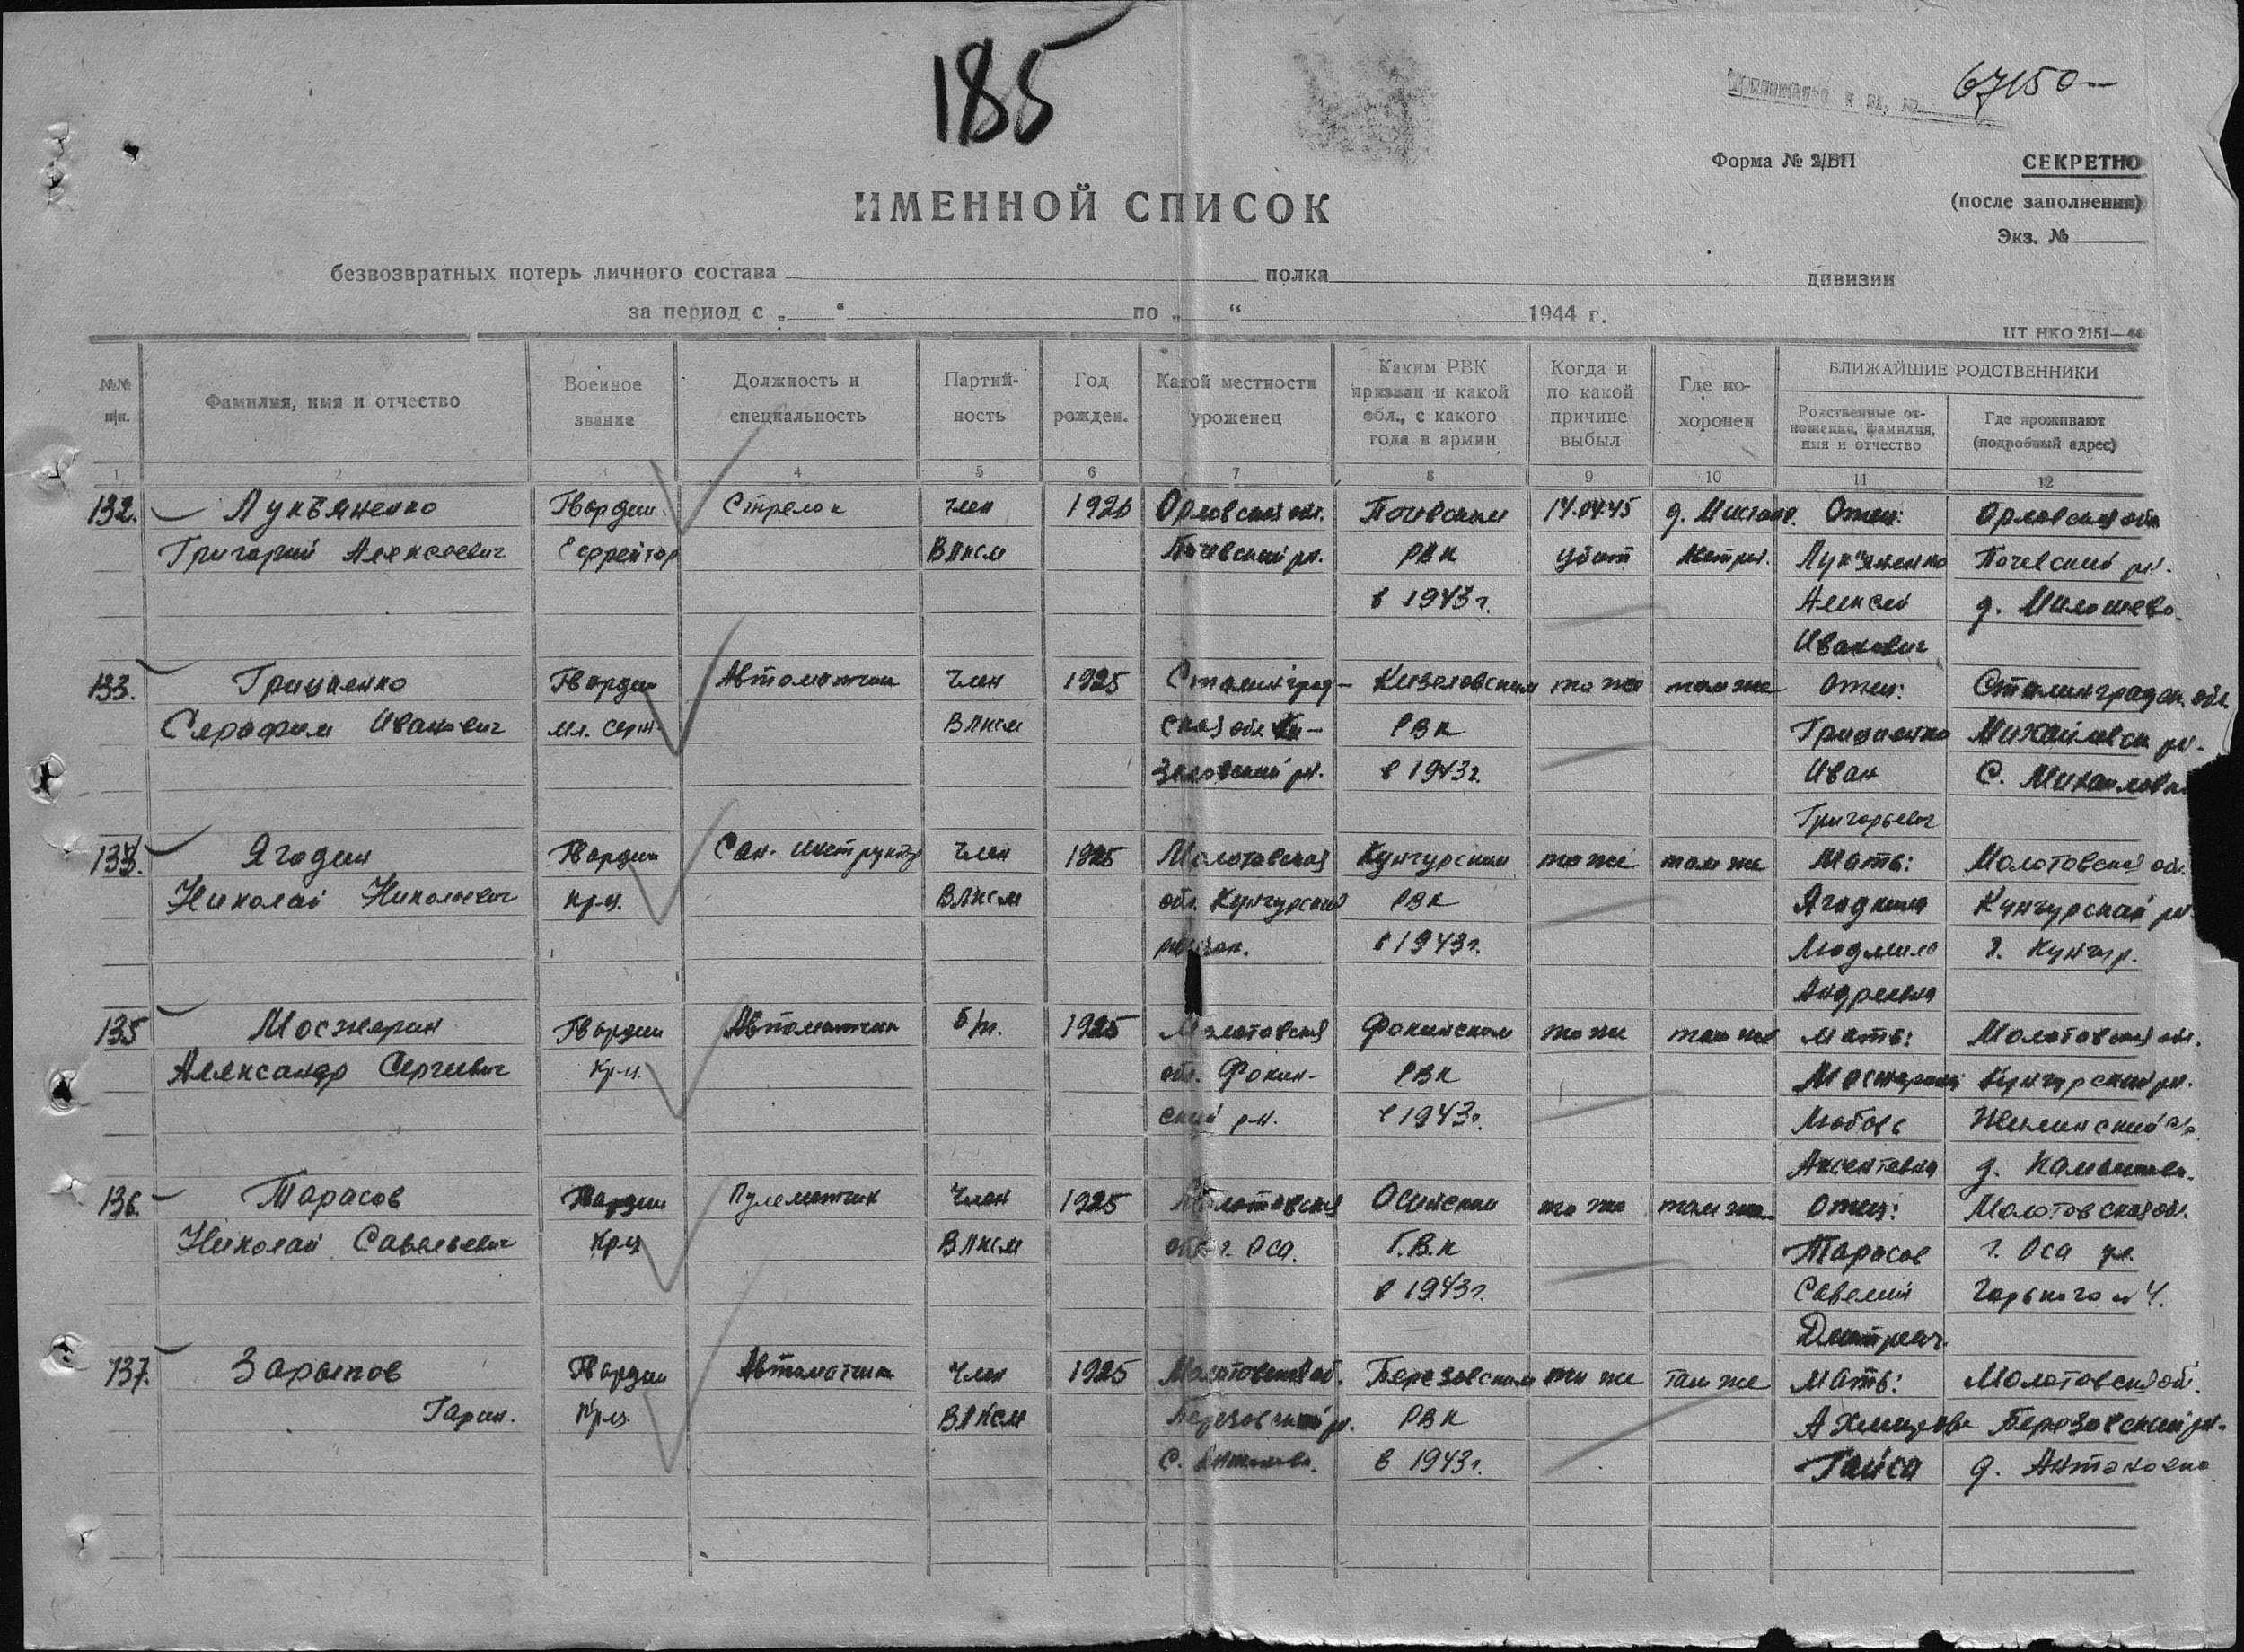 185
67150-
Форма № 2/БП
СЕКРЕТНО
(после заполнения)
Экз. №
ИМЕННОЙ СПИСОК
безвозвратных потерь личного состава полка дивизии
за период с „ “ по „ “ 1944 г.
ЦТ НКО 2151—44
№№ п/п.
Фамилия, имя и отчество
Военное звание
Должность и специальность
Партий-ность
Год рожден.
Какой местности уроженец
Каким РВК призван и какой обл., с какого года в армии
Когда и по какой причине выбыл
Где по-хоронен
БЛИЖАЙШИЕ РОДСТВЕННИКИ
Родственные от-ношения, фамилия, имя и отчество
Где проживают (подробный адрес)
1 2 3 4 5 6 7 8 9 10 11 12
132. Лукъяненко Гвардии Стрелок член 1926 Орловская обл. Почевским 14.04.45 Отец: Орловская обл
Григорий Алексеевич Ефрейтор ВЛКСМ Почевский рн. РВК убит Лукъяненко Почевский рн.
в 1943 г. Алексей д. Милошево
Иванович
133. Гриценко Гвардии Автоматчик член 1925 Сталинград- Кизеловским то же там же Отец: Сталинградск. обл.
Серафим Иванович мл. серж. ВЛКСМ ская обл. Ки- РВК Гриценко Михайловск рн.
зеловский рн. в 1943 г. Иван с.
Григорьевич
134. Ягодин Гвардии Сан. инструктор член 1925 Молотовская Кунгурским то же там же Мать: Молотовская обл.
Николай Николаевич кр-ц. ВЛКСМ обл. Кунгурский РВК Ягодкина Кунгурский рн.
в 1943 г. Людмила г. Кунгур.
Андреевна
135 Мосжерин Гвардии Автоматчик б/п. 1925 Молотовская Фокинским то же там же Мать: Молотовская обл.
Александр Сергеевич Кр-ц. обл. Фокин- РВК Кунгурский рн.
ский рн. в 1943 г. Любовь
Аксентевна д.
136. Тарасов Гвардии Пулеметчик член 1925 Молотовская Осинским то же там же Отец: Молотовская обл.
Николай Савельевич Кр-ц ВЛКСМ обл. г. Оса. Г.В.К Тарасов г. Оса ул.
в 1943 г. Савелий Горького № 4.
Дмитреевич.
137. Зарыпов Гвардии Автоматчик член 1925 Молотовская об. Березовским то же там же Мать: Молотовская об.
Гарип. Кр-ц. ВЛКСМ Березовский рн. РВК Березовский рн.
с. в 1943 г. Гайса д.